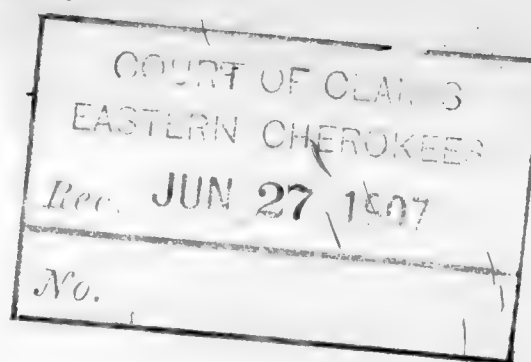 COURT OF CLAIMS
EASTERN CHEROKEES
Rec. JUN 27 1907
No.